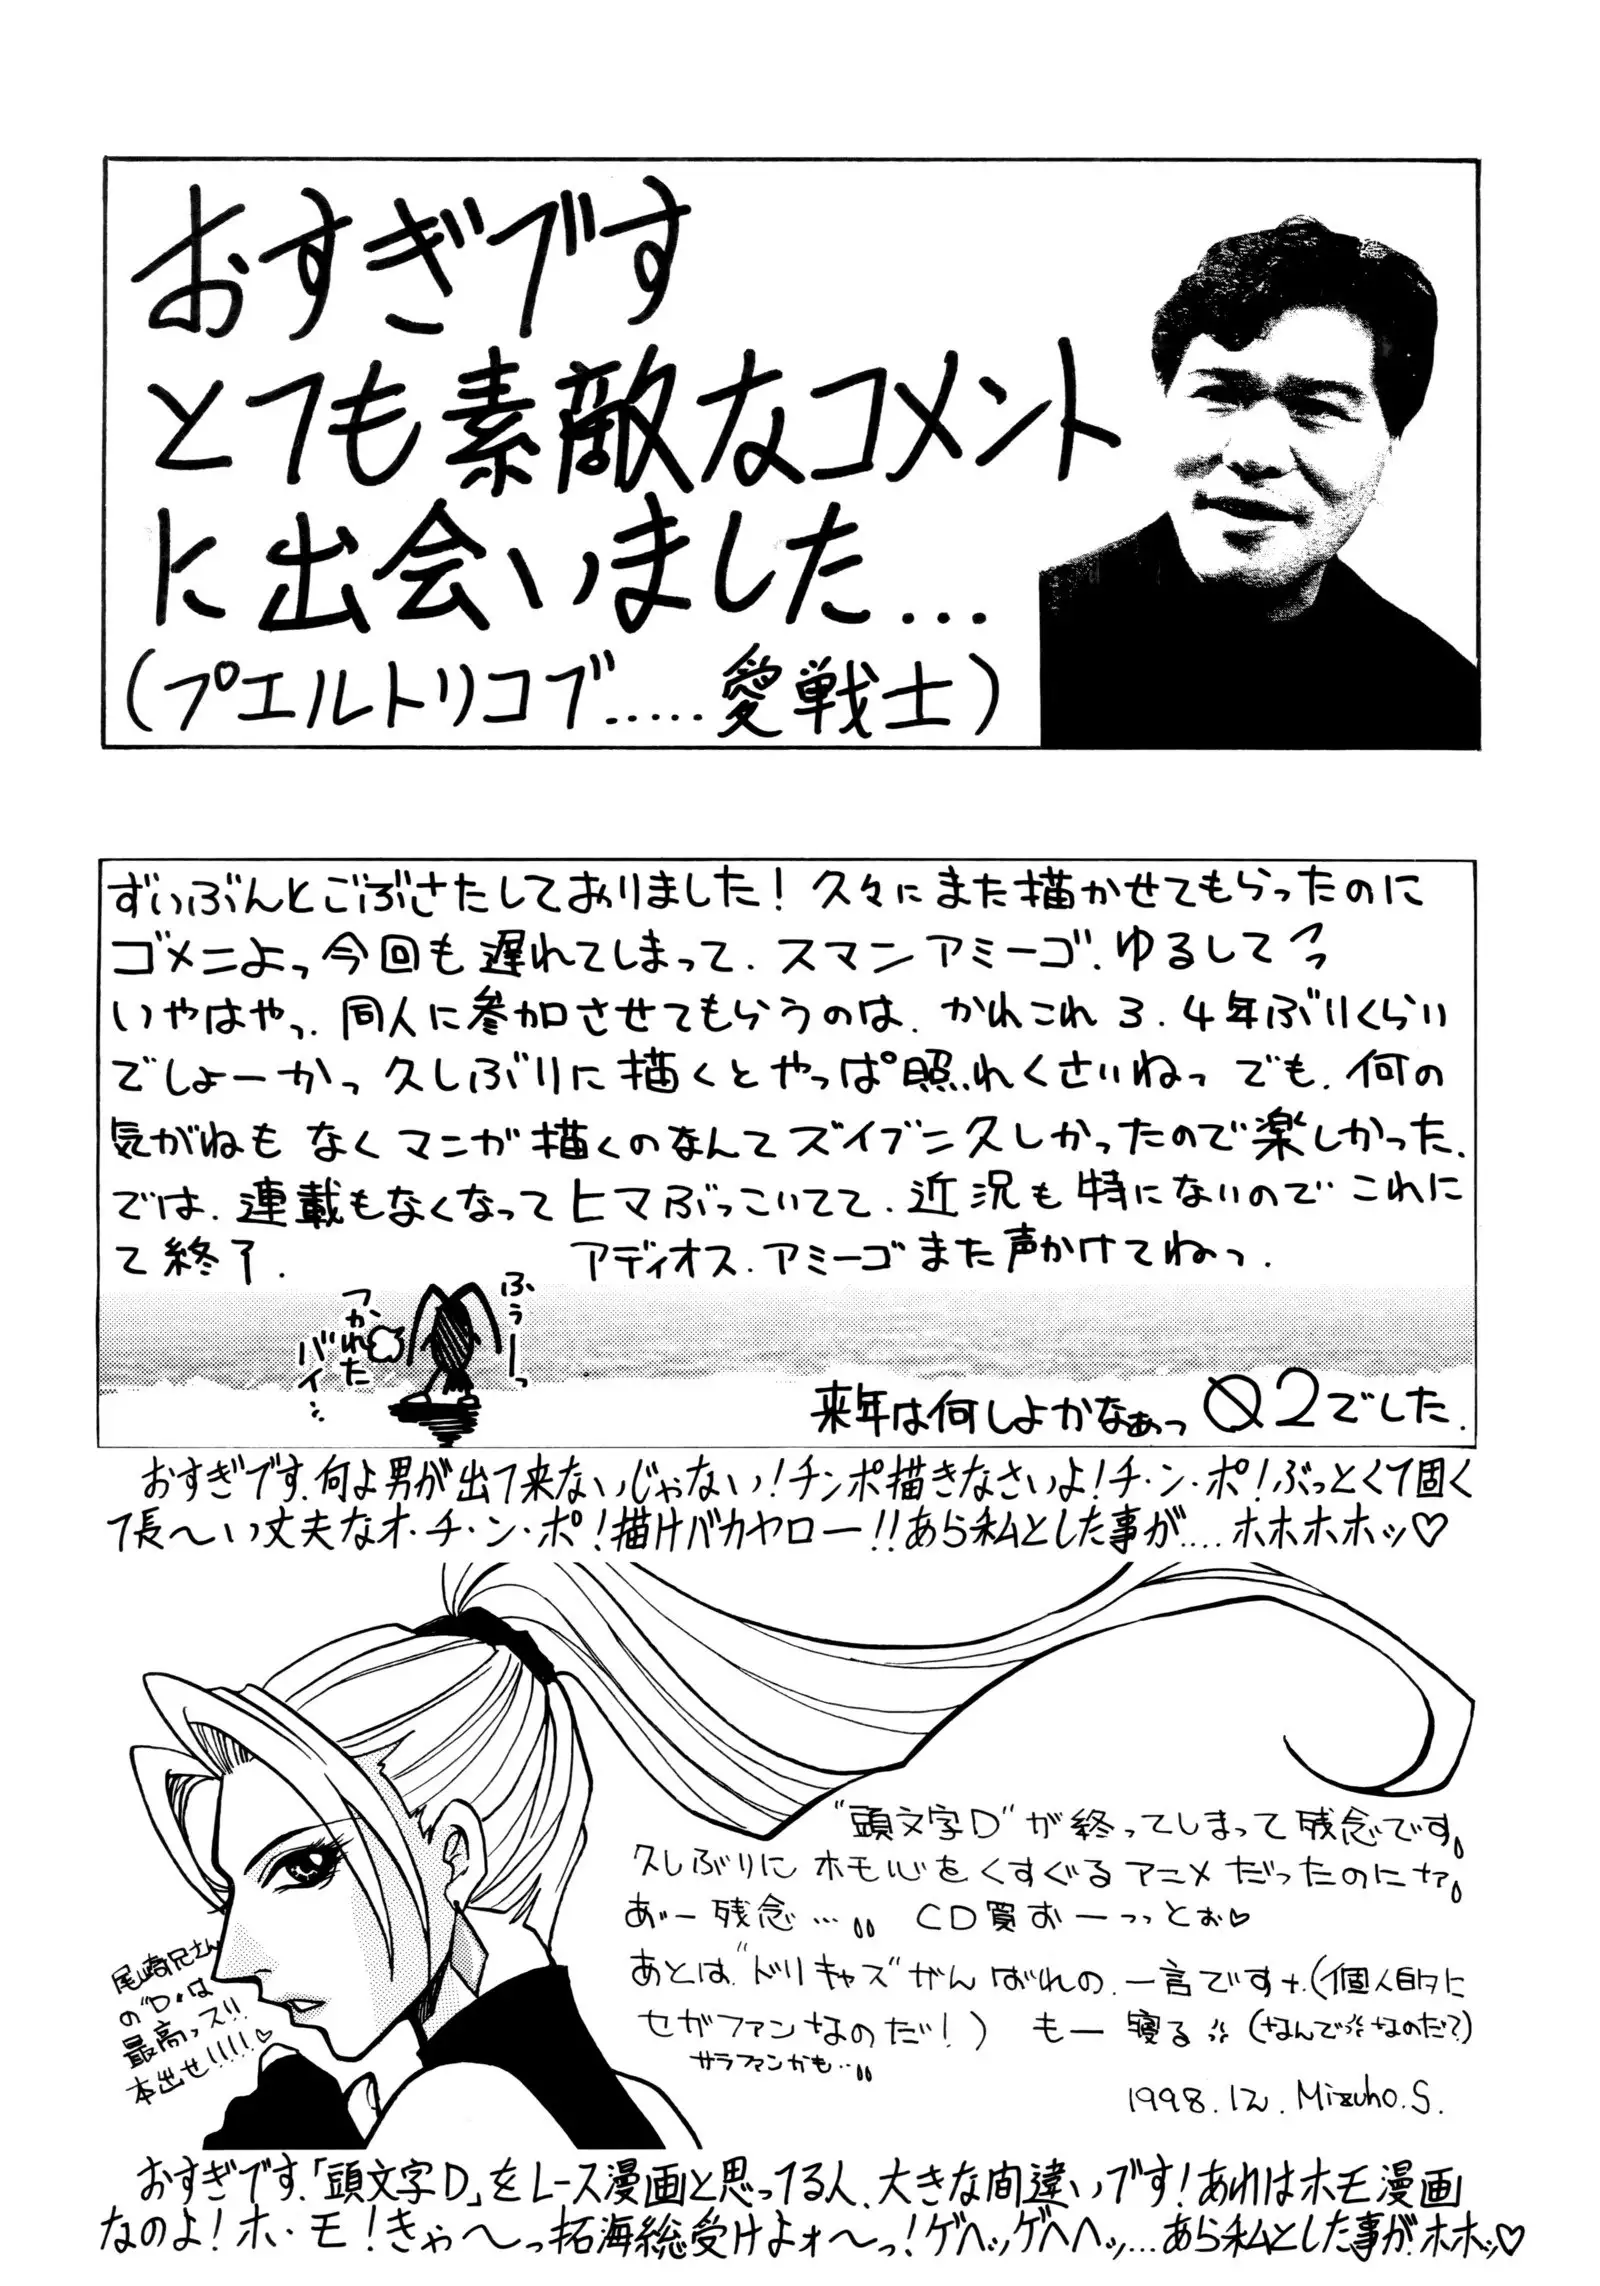 おすぎです
とても素敵なコメント
に出会いました...
(プエルトリコブ.....愛戦士)
ずいぶんとごぶさたしておりました！久々にまた描かせてもらったのに
ゴメニよっ今回も遅れてしまって.スマンアミーゴ.ゆるしてっ
いやはやっ.同人に参加させてもらうのは.かれこれ3.4年ぶりくらい
でしょーかっ久しぶりに描くとやっぱ照れくさいねっ でも.何の
気がねもなくマニガ描くのなんてズイブニ久しかったので楽しかった.
では.連載もなくなってヒマぶっこいてて.近況も特にないのでこれに
て終了. アディオス.アミーゴまた声かけてねっ.
ふぅーっ
つかれた
バイ…
来年は何しよかなぁっ Q2でした.
おすぎです.何よ男が出て来ないじゃない！チンポ描きなさいよ！チ・ン・ポ！ぶっとくて固く
て長〜い丈夫なオ・チ・ン・ポ！描けバカヤロー!!あら私とした事が....ホホホホッ♡
"頭文字D"が終ってしまって残念です。
久しぶりにホモ心をくすぐるアニメだったのにナァ。
あ゛ー残念…。 CD買おーっっとぉ♡
あとは"ドリキャス"がんばれの.一言ですナ.(個人的に
セガファンなのだ！) もー寝る (なんで なのだ？)
サラファンかも…。
尾崎兄さん
の"D"は
最高っス!!
本出せ!!!!♡
1998.12. Mizuho.S.
おすぎです.「頭文字D」をレース漫画と思ってる人.大きな間違いです！あれはホモ漫画
なのよ！ホ・モ！きゃ〜っ拓海総受けよォ〜っ！ゲヘッゲヘヘッ...あら私とした事が.ホホッ♡